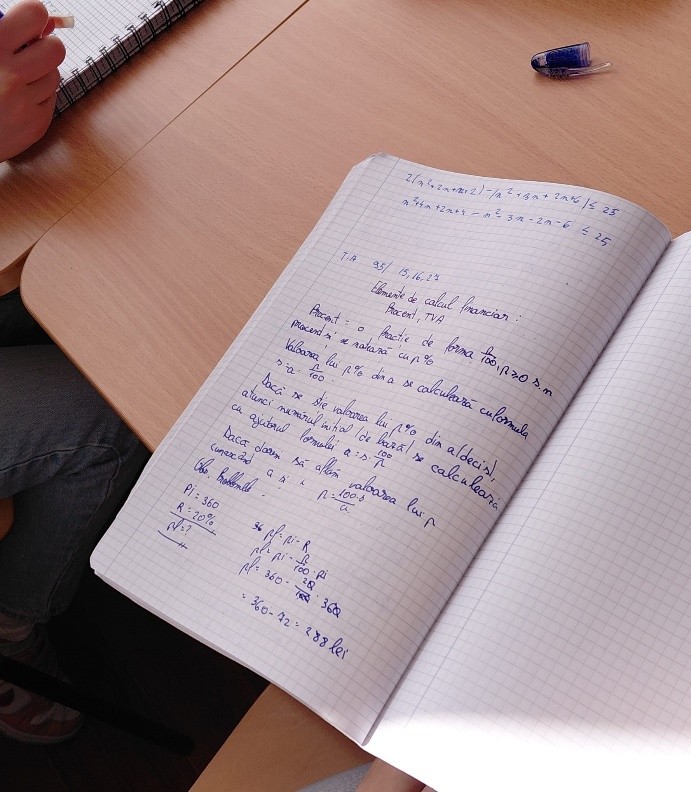 2(n²+2n+n+2) - (n²+3n+2n+6) ≤ 25
n²+4n+2n+4 - n² - 3n - 2n - 6 ≤ 25
T.A 95/ 15,16,27
Elemente de calcul financiar:
Procent, TVA
Procent = o fracție de forma p/100, p≥0 s.n
procent și se notează cu p%
Valoarea lui p% din a se calculează cu formula
s=a·p/100.
Dacă se știe valoarea lui p% din a (deci s),
atunci numărul inițial (de bază) se calculează
cu ajutorul formulei a=s·100/p
Dacă dorim să aflăm valoarea lui p
cunoscând a și s p=100·s/a
Obs. Problemele
Pi=360
R=20%
pf=?
pf=pi-R
pf=pi-p/100·pi
pf=360-20/100·360
=360-72=288 lei